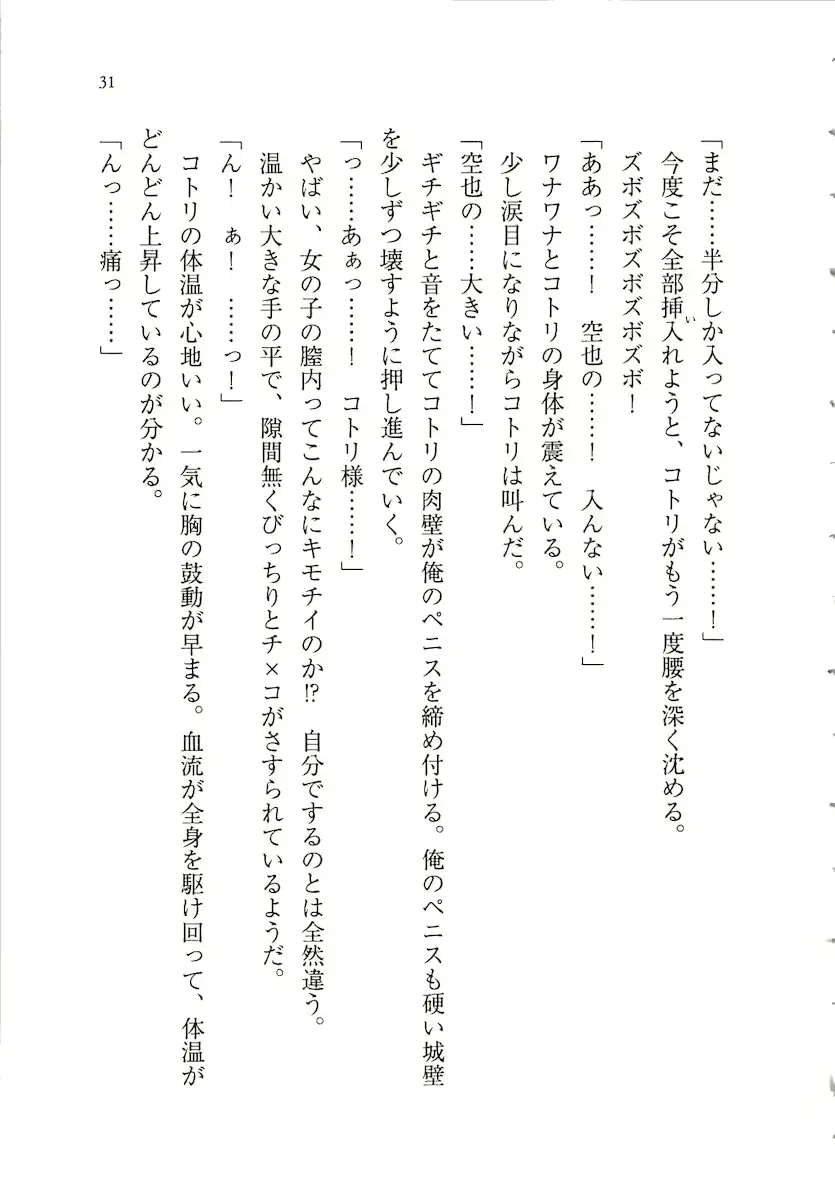 31
「まだ……半分しか入ってないじゃない……！」
今度こそ全部挿入れようと、コトリがもう一度腰を深く沈める。
い
ズボズボズボズボズボ！
「ああっ……！　空也の……！　入んない……！」
ワナワナとコトリの身体が震えている。
少し涙目になりながらコトリは叫んだ。
「空也の……大きい……！」
ギチギチと音をたててコトリの肉壁が俺のペニスを締め付ける。俺のペニスも硬い城壁
を少しずつ壊すように押し進んでいく。
「っ……あぁっ……！　コトリ様……！」
やばい、女の子の膣内ってこんなにキモチイのか⁉　自分でするのとは全然違う。
温かい大きな手の平で、隙間無くびっちりとチ×コがさすられているようだ。
「ん！　ぁ！　……っ！」
コトリの体温が心地いい。一気に胸の鼓動が早まる。血流が全身を駆け回って、体温が
どんどん上昇しているのが分かる。
「んっ……痛っ……」